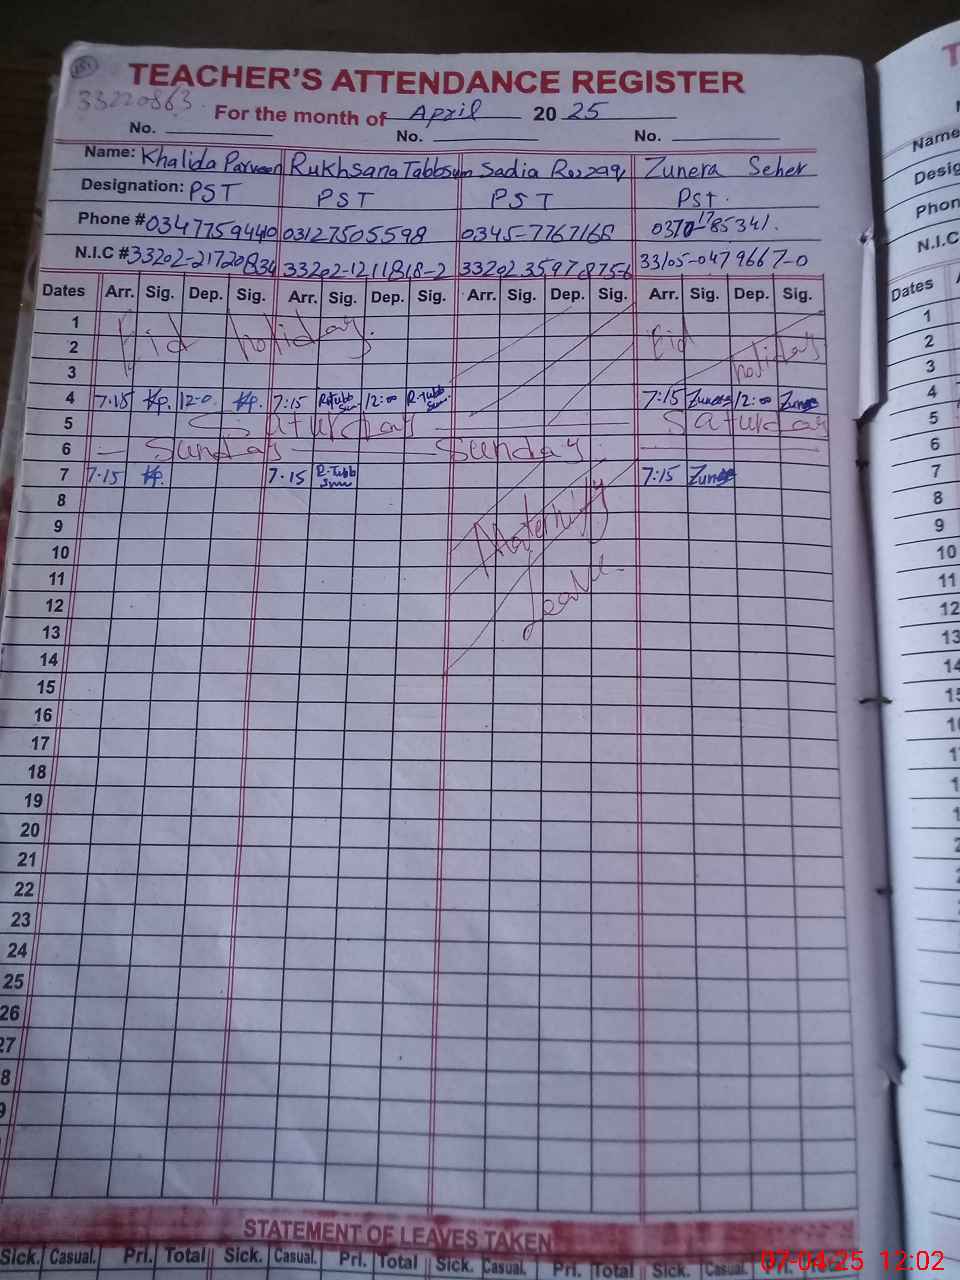 33220863
TEACHER'S ATTENDANCE REGISTER
For the month of April 20 25
No. No. No.
Name: Khalida Parveen Rukhsana Tabbsum Sadia Rezzaq Zunera Seher
Designation: PST PST PST PST.
Phone # 03477759440 03127505598 0345-7767168 0370-1785341.
N.I.C # 33202-2172083 33202-1211818-2 33202 35978756 33105-0479667-0
Dates Arr. Sig. Dep. Sig. Arr. Sig. Dep. Sig. Arr. Sig. Dep. Sig. Arr. Sig. Dep. Sig.
1 Eid holiday. Eid
2 holiday
3
4 7:15 Kp. 12:0 Kp. 7:15 R-Tubb Sum 12:00 R-Tubb Sum 7:15 Zunera 12:00 Zunera
5 Saturday Saturday
6 Sunday Sunday
7 7:15 Kp. 7:15 R-Tubb Sum 7:15 Zunera
8
9 Maternity
10
11 Leave
12
13
14
15
16
17
18
19
20
21
22
23
24
25
26
27
8
9
STATEMENT OF LEAVES TAKEN
Sick. Casual. Pri. Total Sick. Casual. Pri. Total Sick. Casual. Pri. Total Sick. Casual. Pri. Total
07-04-25 12:02
T
Name
Desig
Phon
N.I.C
Dates
1
2
3
4
5
6
7
8
9
10
11
12
13
14